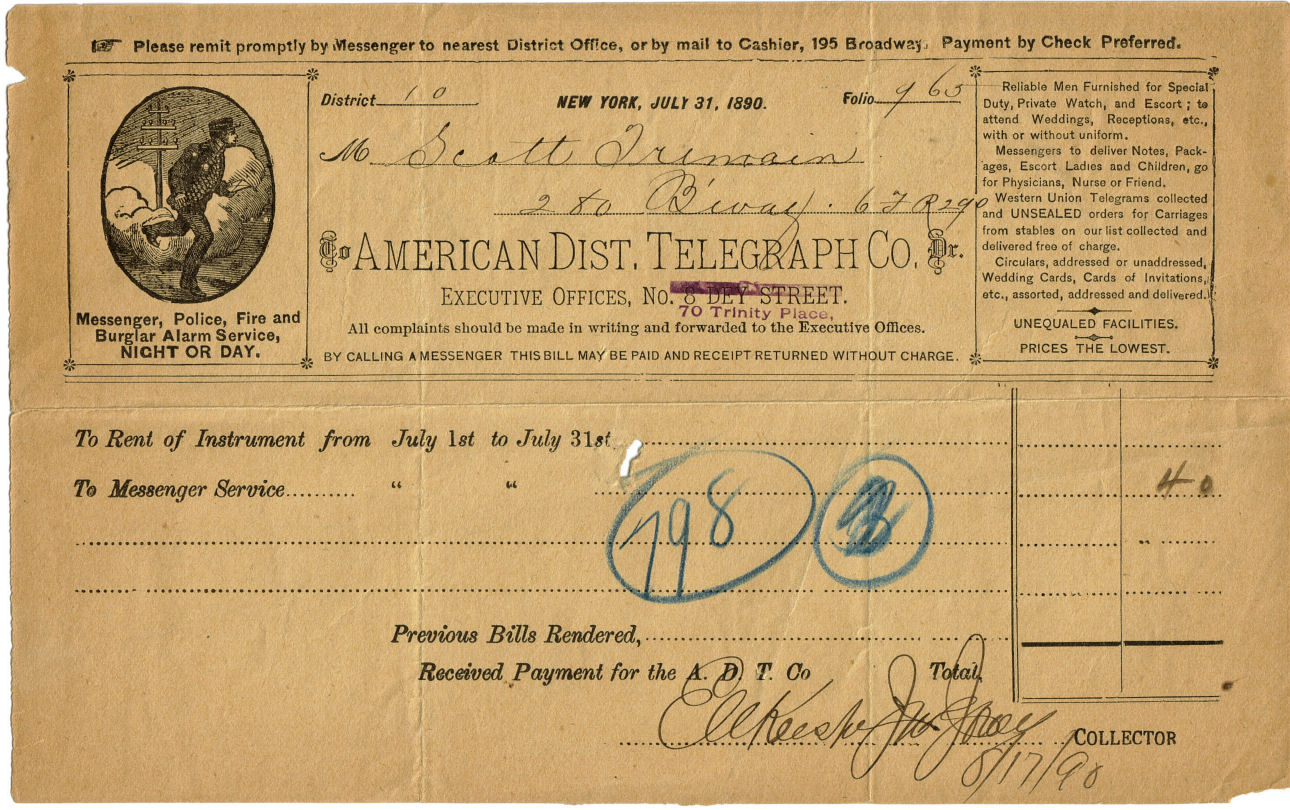 Please remit promptly by Messenger to nearest District Office, or by mail to Cashier, 195 Broadway. Payment by Check Preferred.
Messenger, Police, Fire and
Burglar Alarm Service,
NIGHT OR DAY.
District 10
NEW YORK, JULY 31, 1890.
Folio 965
M Scott Tremain
280 B'way. 6 F R 290
To AMERICAN DIST. TELEGRAPH CO. Dr.
EXECUTIVE OFFICES, NO. 8 DEY STREET.
70 Trinity Place,
All complaints should be made in writing and forwarded to the Executive Offices.
BY CALLING A MESSENGER THIS BILL MAY BE PAID AND RECEIPT RETURNED WITHOUT CHARGE.
Reliable Men Furnished for Special
Duty, Private Watch, and Escort; to
attend Weddings, Receptions, etc.,
with or without uniform.
Messengers to deliver Notes, Pack-
ages, Escort Ladies and Children, go
for Physicians, Nurse or Friend.
Western Union Telegrams collected
and UNSEALED orders for Carriages
from stables on our list collected and
delivered free of charge.
Circulars, addressed or unaddressed,
Wedding Cards, Cards of Invitations,
etc., assorted, addressed and delivered.
UNEQUALED FACILITIES.
PRICES THE LOWEST.
To Rent of Instrument from July 1st to July 31st
To Messenger Service.......... " " 40
798
Previous Bills Rendered,
Received Payment for the A. D. T. Co Total,
COLLECTOR
8/17/90